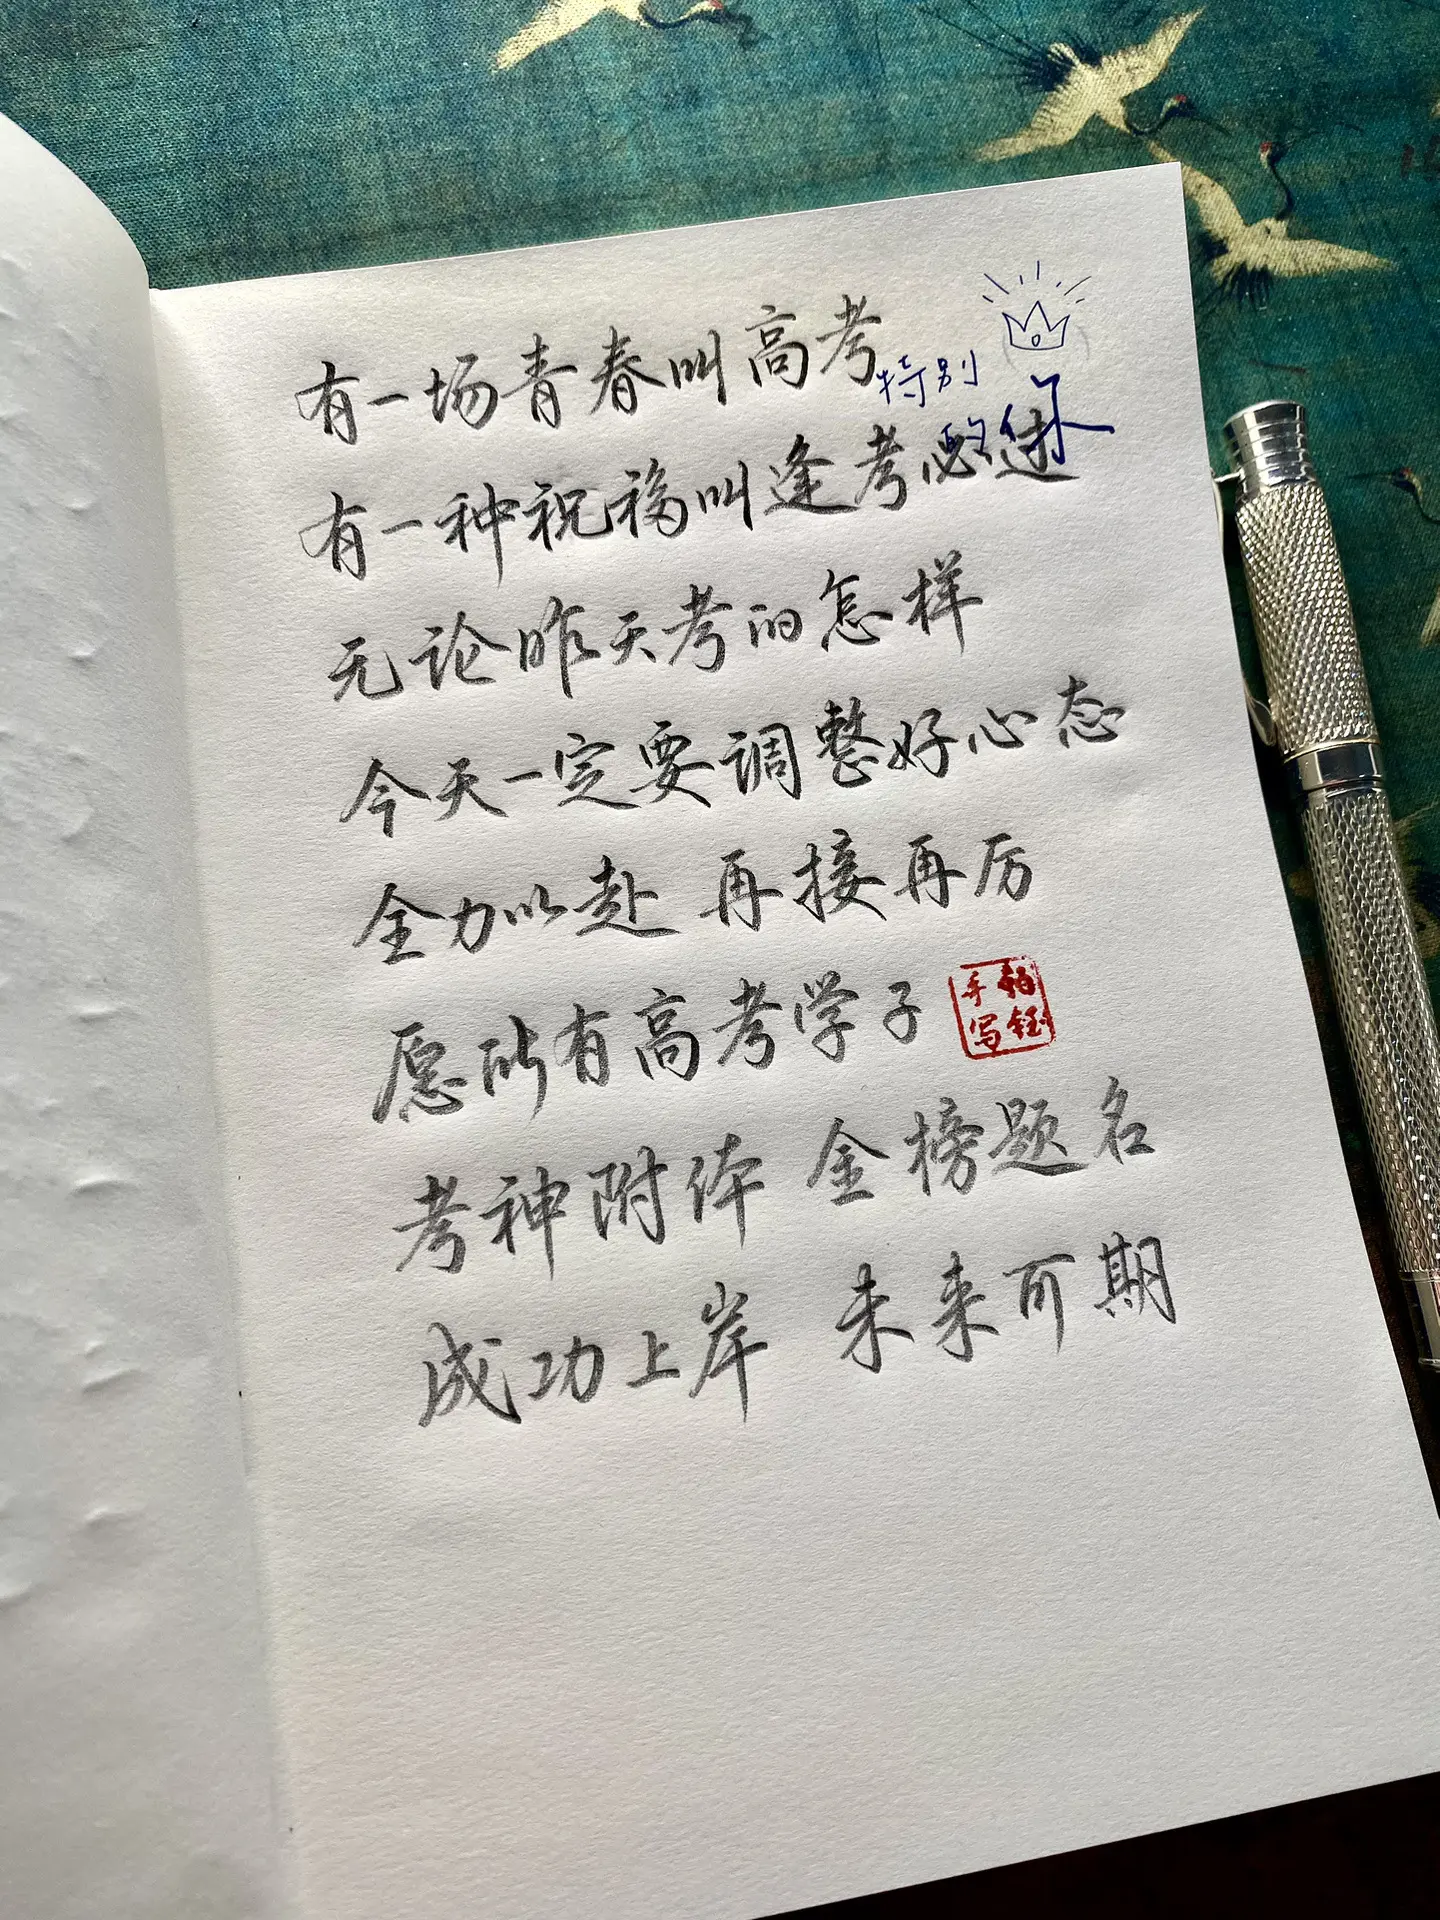 有一场青春叫高考
特别的
有一种祝福叫逢考必过
无论昨天考的怎样
今天一定要调整好心态
全力以赴 再接再厉
愿所有高考学子
手写
考神附体 金榜题名
成功上岸 未来可期